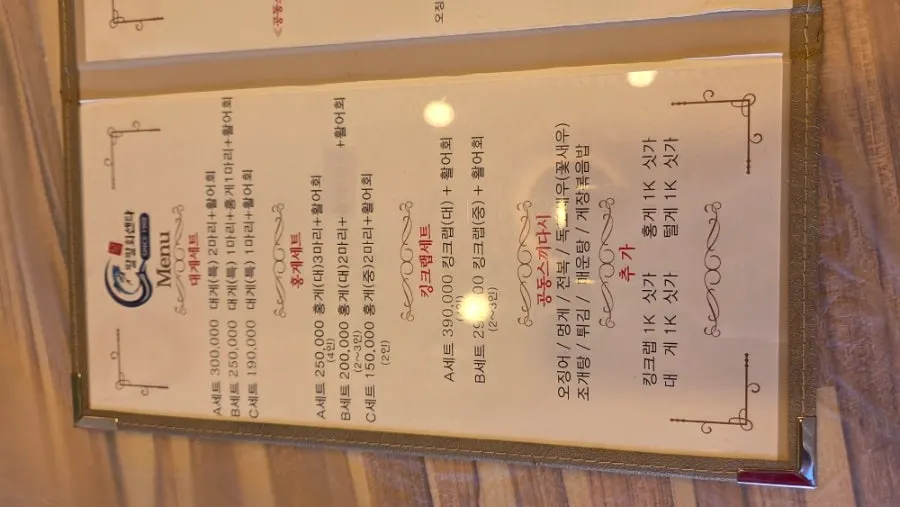 팔팔회센타
SINCE 1989
Menu
대게세트
A세트 300,000 대게(특) 2마리+활어회
B세트 250,000 대게(특) 1마리+홍게1마리+활어회
C세트 190,000 대게(특) 1마리+활어회
홍게세트
A세트 250,000 홍게(대)3마리+활어회
(4인)
B세트 200,000 홍게(대)2마리+ +활어회
(2~3인)
C세트 150,000 홍게(중)2마리+활어회
(2인)
킹크랩세트
A세트 390,000 킹크랩(대) + 활어회
B세트 킹크랩(중) + 활어회
(2~3인)
공동스끼다시
오징어 / 멍게 / 전복 / (꽃새우)
조개탕 / 튀김 / 매운탕 / 게장볶음밥
추 가
킹크랩 1K 싯가 홍게 1K 싯가
대 게 1K 싯가 털게 1K 싯가